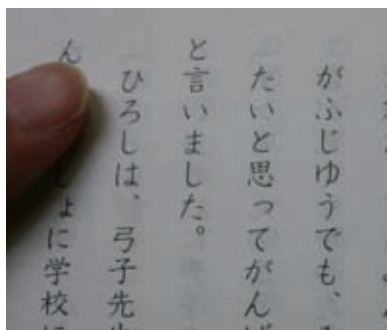 がふじゆうでも、
たいと思ってがんば
と言いました。
ひろしは、弓子先生
ん
ょに学校に